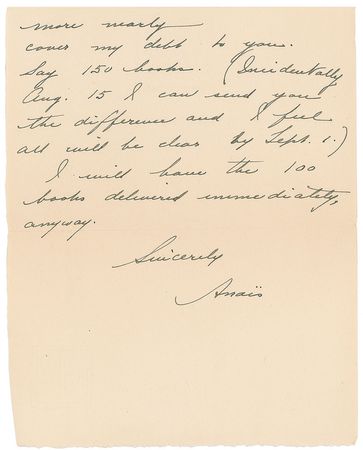 more nearly
cover my debt to you.
Say 150 books. (Incidentally
Aug. 15 I can send you
the difference and I feel
all will be clear by Sept. 1.)
I will have the 100
books delivered immediately,
anyway.
Sincerely
Anaïs